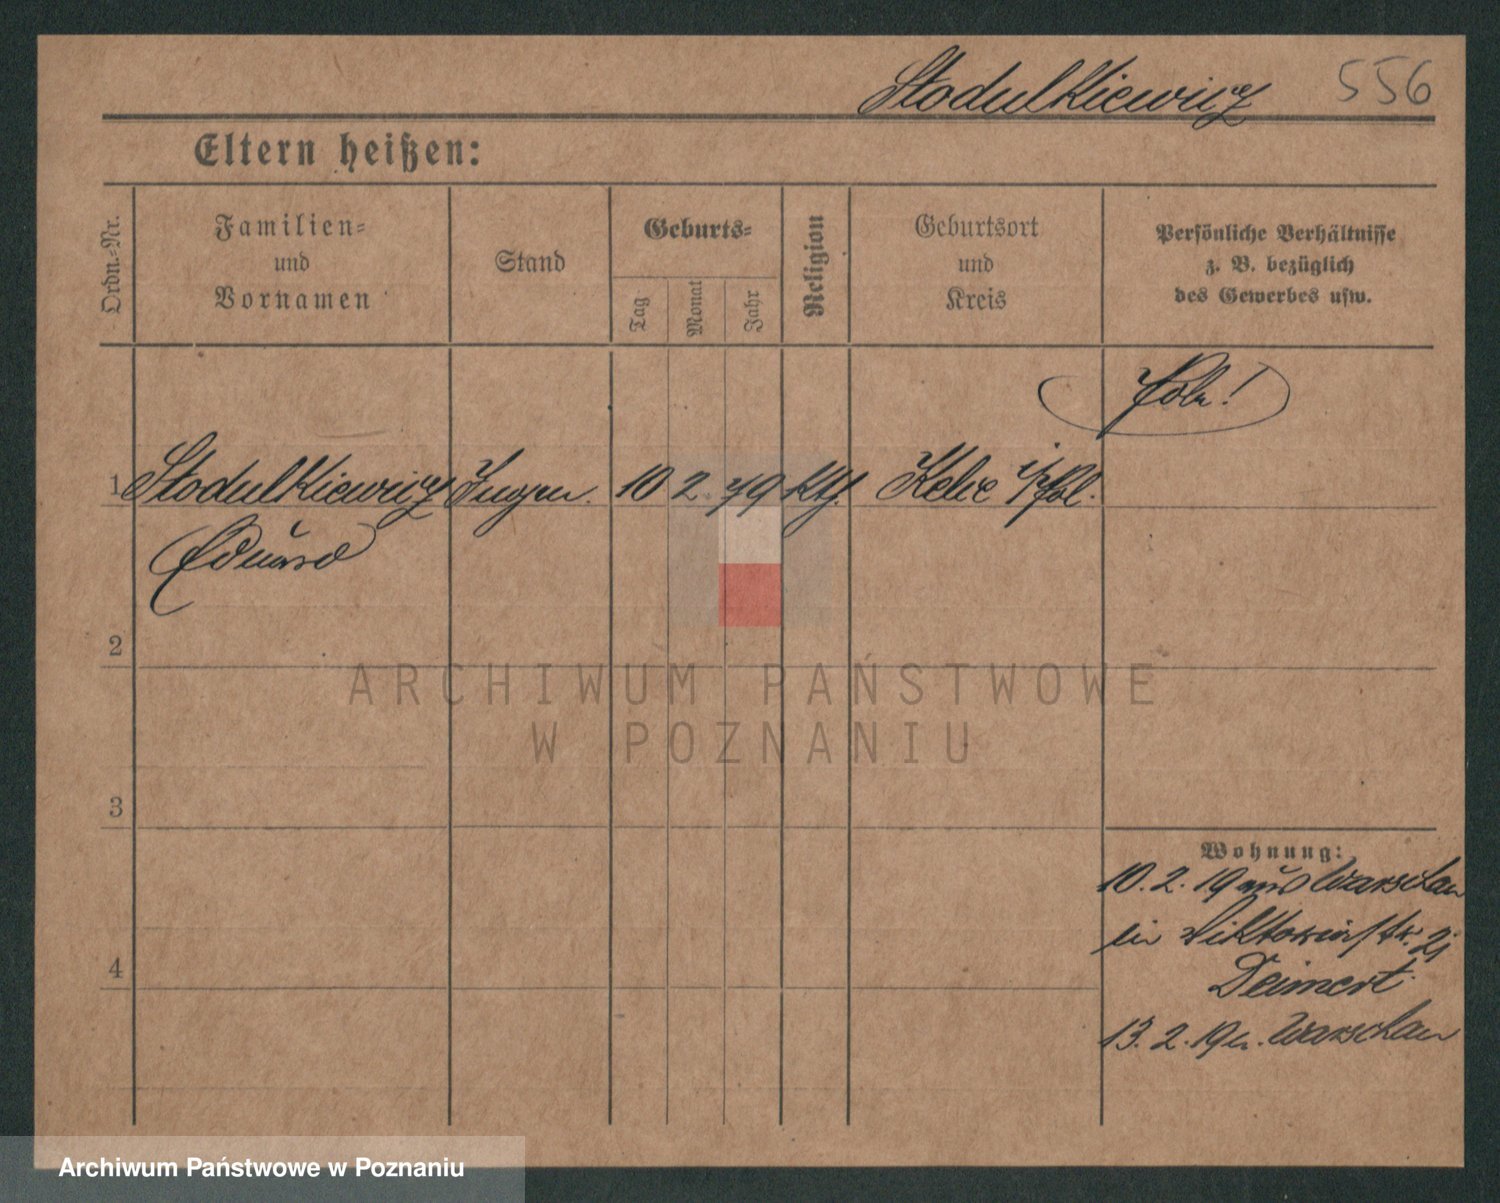 Stodulkiewicz 556
Eltern heißen:
Ordn.-Nr.
Familien-
und
Vornamen
Stand
Geburts-
Tag
Monat
Jahr
Religion
Geburtsort
und
Kreis
Persönliche Verhältnisse
z. B. bezüglich
des Gewerbes usw.
Pole!
1 Stodulkiewicz 10 2. 79 kth.
Eduard
2
3
4
Wohnung:
10. 2. 19 aus Warschau
in Viktoriastr. 21
Deimert
13. 2. 19 n. Warschau
ARCHIWUM PAŃSTWOWE
W POZNANIU
Archiwum Państwowe w Poznaniu